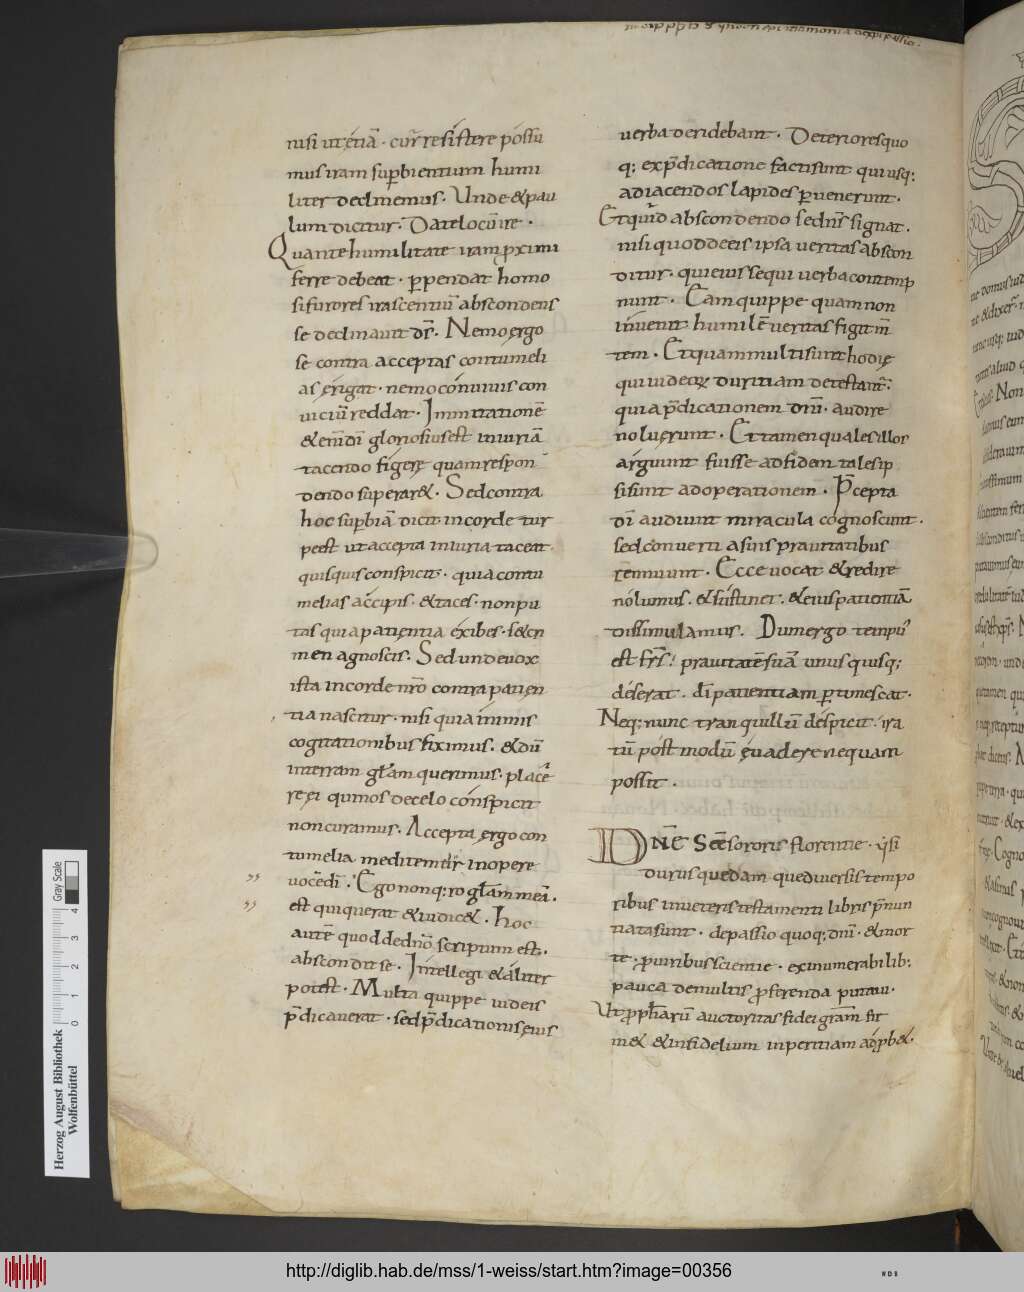 nisi ut etiā · cū resistere possu
mus iram superbientium humi
liter declinemus. Unde &pau
lum dicitur. Date locū ire.
Quante humilitate iram proximi
ferre debeat · p̱pendat homo
si furores irascentiū abscondens
se declinavit dr̄. Nemo ergo
se contra acceptas contumeli
as erigat · nemo conuitiis con
uiciū reddat. Imitatione̅
& enī dī gloriosius est iniuriā
tacendo figere quam respon
dendo superare. Sed contra
hoc supbiā dicit in corde tur
pe est ut accepta iniuria taceat.
quisquis conspicit · quia contu
melias accipis · & taces · non pu
tas quia patientia exibes · s& cri
men agnoscis. Sed unde uox
ista in corde nr̄o contra patien
tia nascitur · nisi quia in imis
cogitationibus fiximus. & dū
in terram gl̄am querimus · place
re ei qui nos de celo conspicit
non curamus. Accepta ergo con
tumelia meditemur in opere
uocē dī. Ego non q:ro gl̄am meā.
est qui querat & iudic&. hoc
autē quod de dn̄o scriptum est.
abscondit se. Intellegi & aliter
potest. Multa quippe iudeis
p̄dicauerat · sed p̄dicationis eius
uerba deridebant. Deteriores quo
q; ex p̄dicatione facti sunt qui usq:
ad iaciendos lapides puenerunt.
Et quid abscondendo se dn̄s signat.
nisi quod de eis ipsa ueritas abscon
ditur · qui eius sequi uerba contemp
nunt. Eam quippe quam non
inuenit humilē ueritas fugit m̄
tem. Et quam multi sunt hodie
qui iudeoꝝ duritiam detestant̄:
quia p̄dicationem dn̄i. audire
noluerunt. Et tamen quales illos
arguunt fuisse ad fidem tales ip
si sunt ad operationem. P̄cepta
dī audiunt miracula cognoscunt.
sed conuerti a suis prauitatibus
rennuunt. Ecce uocat & redire
nolumus. & sustinet. & eius patientiā
dissimulamus. Dum ergo tempus
est fr̄s: prauitatē suā unus quisq;
deserat. dī patientiam ptimescat.
Neq: nunc tranquillū despicit · ira
tū post modū euadere nequam
possit.
DN̄E Scē sororis florentie · ysi
dorus quedam que diuersis tempo
ribus in ueteris testamenti libris p̄nun
tiata sunt · de passio quoq; dn̄i · & mor
te · pluribus scientie · ex innumerabilib:
pauca de multis proferenda putaui.
Ut prophetarū auctoritas fidei gram̄ fir
m& & infidelium inperitiam ad prob&.
Herzog August Bibliothek
Wolfenbüttel
Gray Scale
0 1 2 3 4
http://diglib.hab.de/mss/1-weiss/start.htm?image=00356